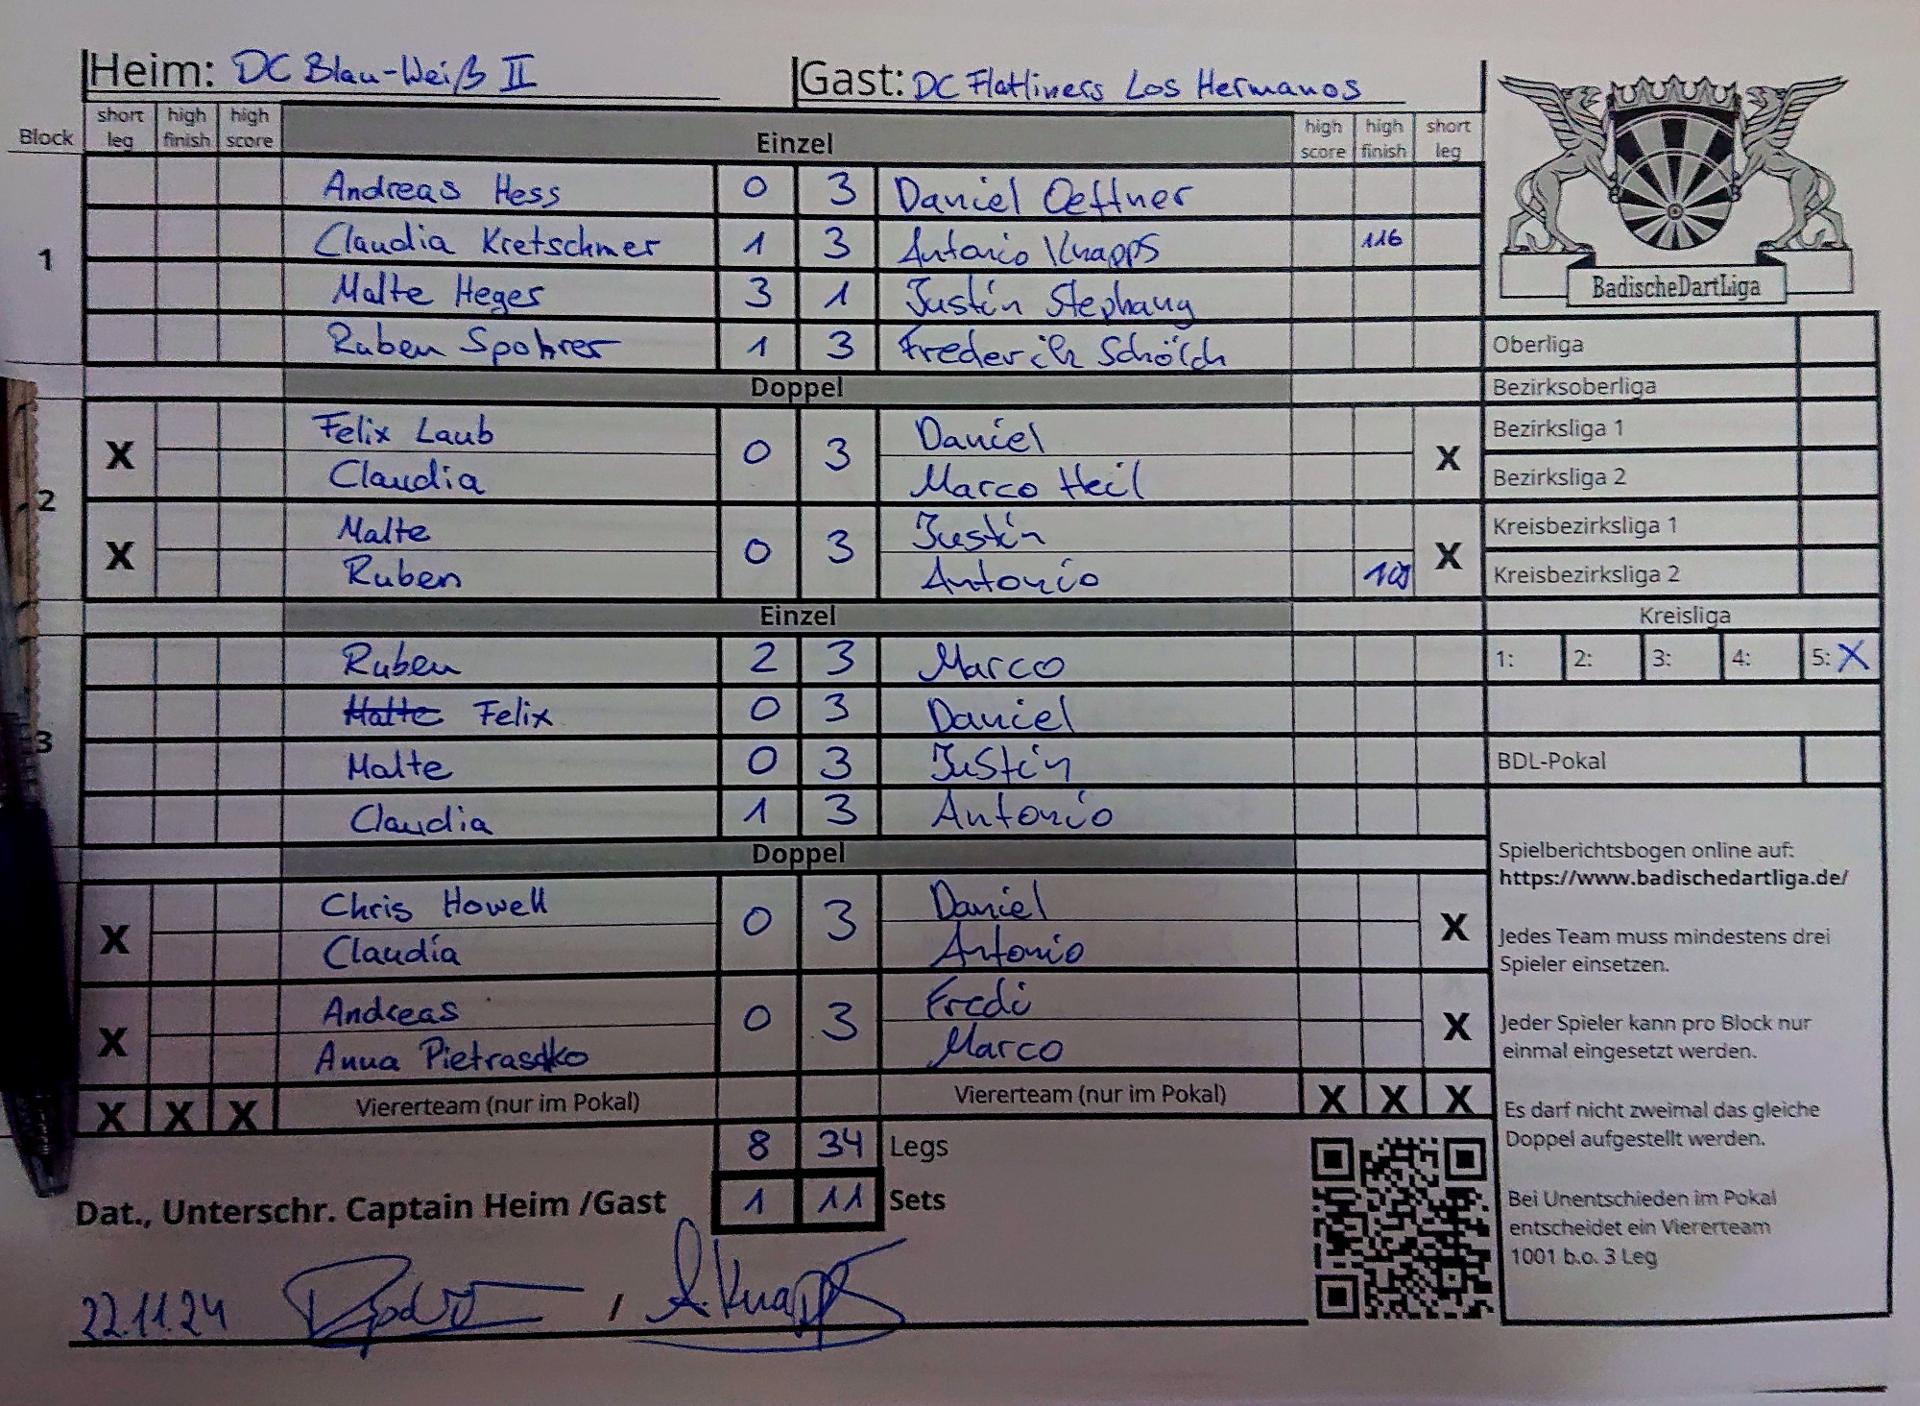 Heim: DC Blau-Weiß II Gast: DC Flatliners Los Hermanos
Block short leg high finish high score Einzel high score high finish short leg
BadischeDartLiga
1
Andreas Hess 0 3 Daniel Oeftner
Claudia Kretschmer 1 3 Antonio Knapps 116
Malte Heger 3 1 Justin Stephany
Ruben Spohrer 1 3 Frederik Schölch
Doppel
2
X Felix Laub 0 3 Daniel X
Claudia Marco Heil
X Malte 0 3 Justin X
Ruben Antonio
Einzel
3
Ruben 2 3 Marco
Malte Felix 0 3 Daniel
Malte 0 3 Justin
Claudia 1 3 Antonio
Doppel
X Chris Howell 0 3 Daniel X
Claudia Antonio
X Andreas 0 3 Fredi X
Anna Pietrasdko Marco
X X X Viererteam (nur im Pokal) Viererteam (nur im Pokal) X X X
8 34 Legs
1 11 Sets
Dat., Unterschr. Captain Heim /Gast
22.11.24 , A. Knapps
Oberliga
Bezirksoberliga
Bezirksliga 1
Bezirksliga 2
Kreisbezirksliga 1
Kreisbezirksliga 2
Kreisliga
1: 2: 3: 4: 5: X
BDL-Pokal
Spielberichtsbogen online auf:
https://www.badischedartliga.de/
Jedes Team muss mindestens drei
Spieler einsetzen.
Jeder Spieler kann pro Block nur
einmal eingesetzt werden.
Es darf nicht zweimal das gleiche
Doppel aufgestellt werden.
Bei Unentschieden im Pokal
entscheidet ein Viererteam
1001 b.o. 3 Leg